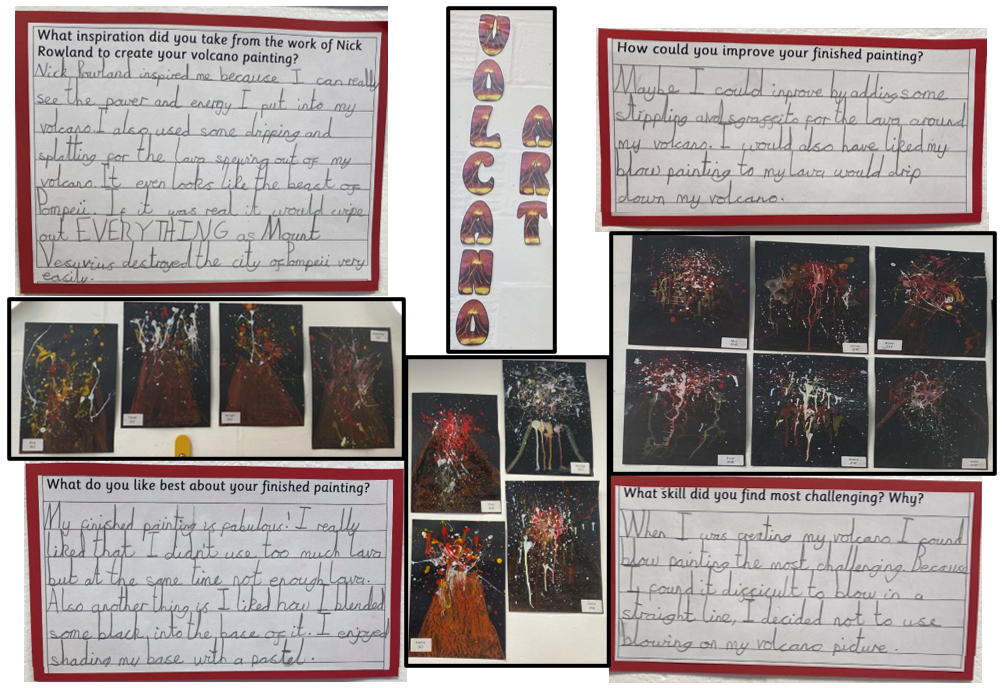 What inspiration did you take from the work of Nick
Rowland to create your volcano painting?
Nick Rowland inspired me because I can really
see the power and energy I put into my
volcano. I also used some dripping and
splatting for the lava spewing out of my
volcano. It even looks like the beast of
Pompeii. If it was real it would wipe
out EVERYTHING as Mount
Vesuvius destroyed the city of Pompeii very
easily.
VOLCANO
ART
How could you improve your finished painting?
Maybe I could inprove by adding some
stippling and sgraffito for the lava around
my volcano. I would also have liked my
blow painting to my lava would drip
down my volcano.
What do you like best about your finished painting?
My finished painting is fabulous! I really
liked that I didn't use too much lava
but at the same time not enough lava.
Also another thing is I liked how I blended
some black into the base of it. I enjoyed
shading my base with a pastel.
What skill did you find most challenging? Why?
When I was creating my volcano I found
blow painting the most challenging. Because
I found it difficult to blow in a
straight line, I decided not to use
blowing on my volcano picture.